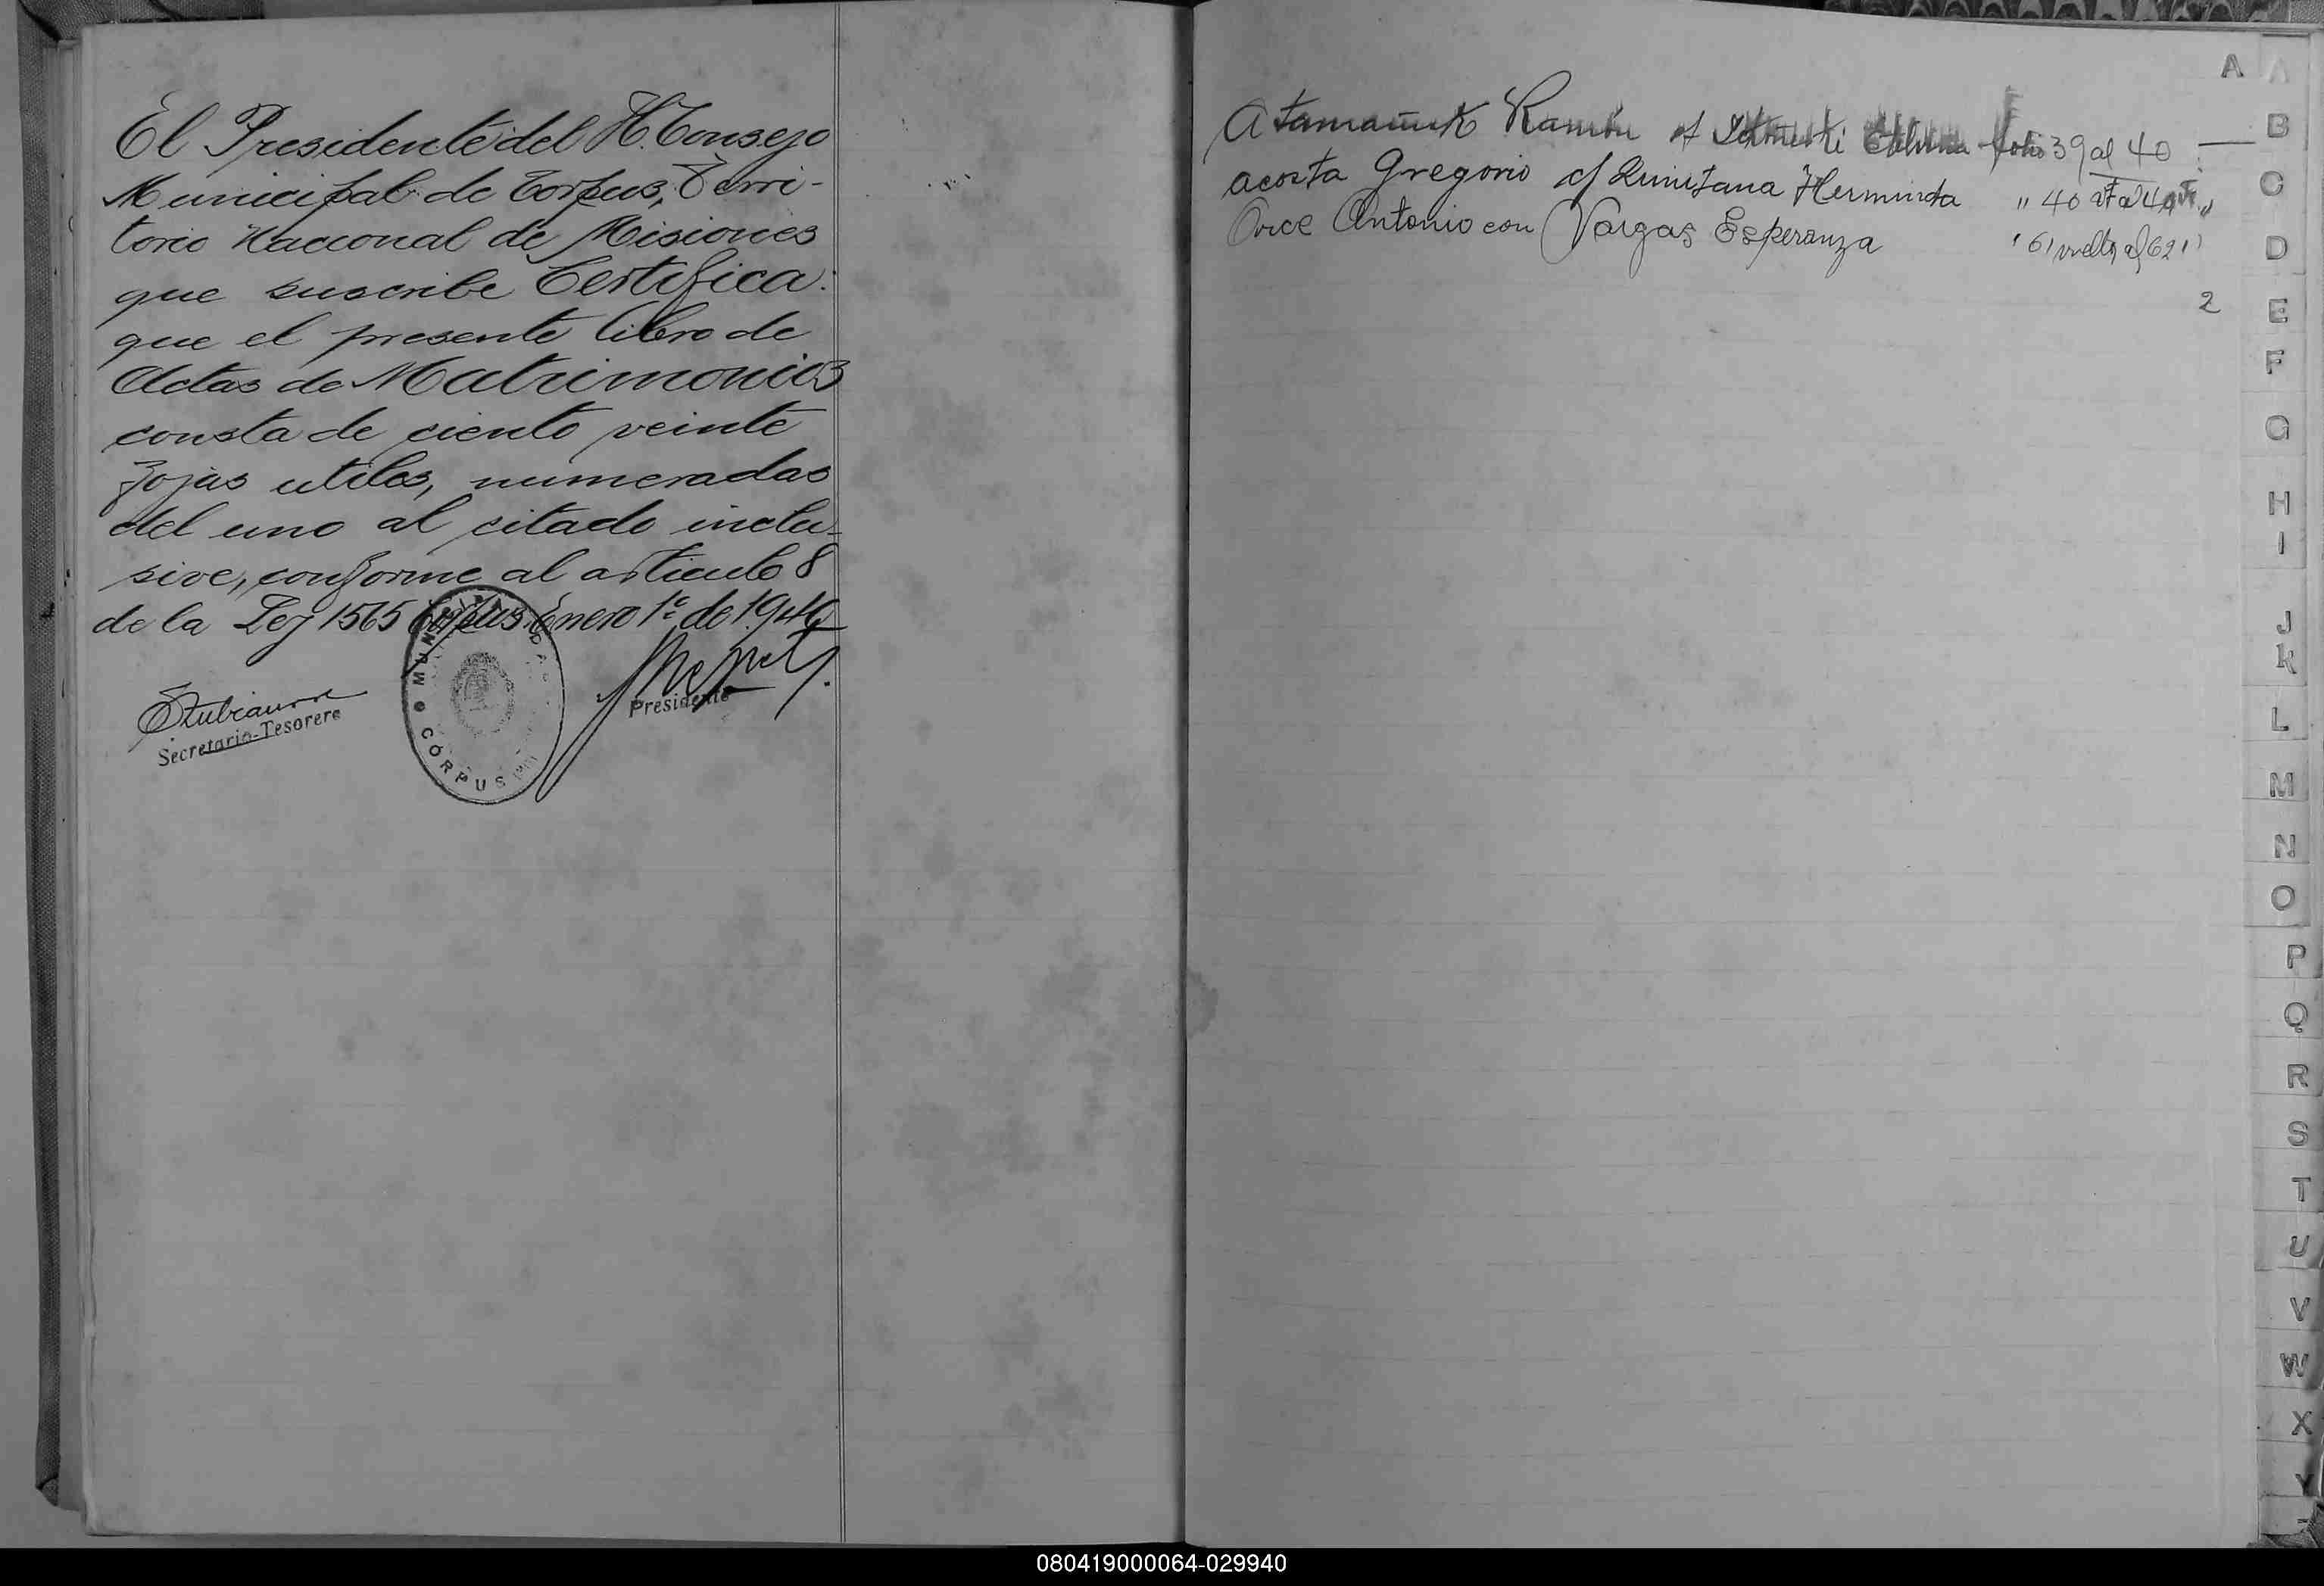 El Presidente del H. Consejo
Municipal de Corpus, Terri-
torio Nacional de Misiones
que suscribe Certifica:
que el presente libro de
Actas de Matrimonios
consta de ciento veinte
fojas utiles, numeradas
del uno al citado inclu-
sive, conforme al articulo 8
de la Ley 1565 Corpus, Enero 1º de 1940
Secretario-Tesorero
Presidente
MUNICIPAL
CORPUS
A
Atamañuk Ramón c/ folio 39 al 40
Acosta Gregorio c/ Quintana Herminda " 40 vt al
Orce Antonio con Vargas Esperanza " 61 vuelta al 62 "
2
A
B
C
D
E
F
G
H
I
J
K
L
M
N
O
P
Q
R
S
T
U
V
W
X
Y
080419000064-029940